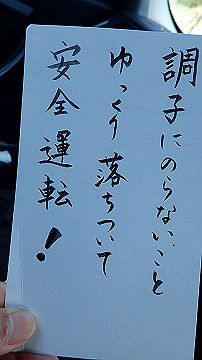 調子にのらないこと
ゆっくり落ちついて
安全運転！